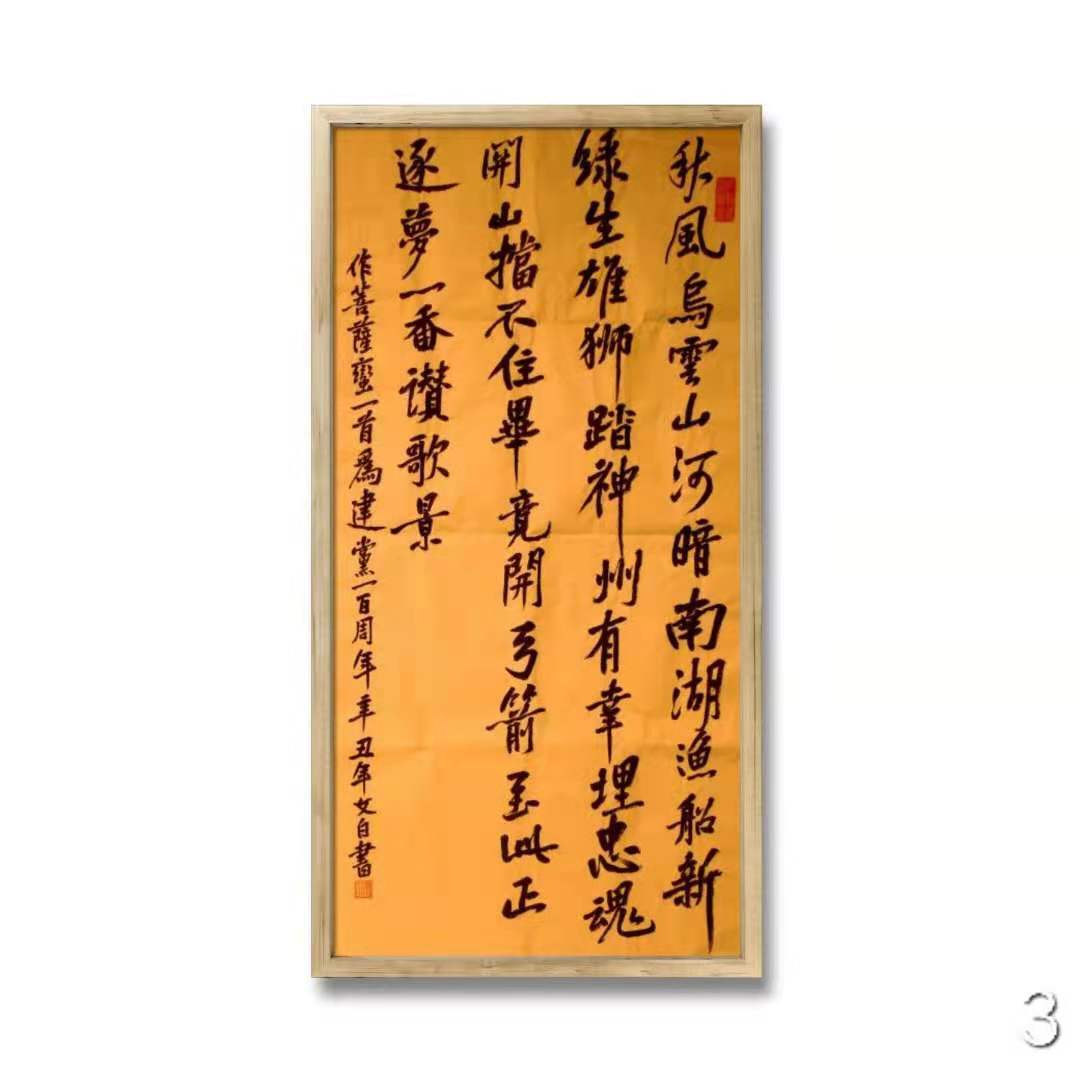 秋風烏雲山河暗南湖漁船新
绿生雄狮踏神州有幸埋忠魂
開山擋不住畢竟開弓箭至此正
逐夢一番讃歌景
作菩薩蠻一首爲建黨一百周年辛丑年文白書
3